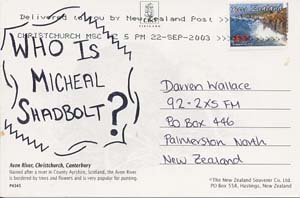 Delivered to you by New Zealand Post >>>
CHRISTCHURCH MSC 2 5 PM 22-SEP-2003 >>>
New Zealand
WHO IS
MICHEAL
SHADBOLT?
Darren Wallace
92-2XS FM
PO Box 446
Palmerston North
New Zealand
Avon River, Christchurch, Canterbury
Named after a river in County Ayrshire, Scotland, the Avon River
is bordered by trees and flowers and is very popular for punting.
P4345
© The New Zealand Souvenir Co. Ltd.
PO Box 558, Hastings, New Zealand